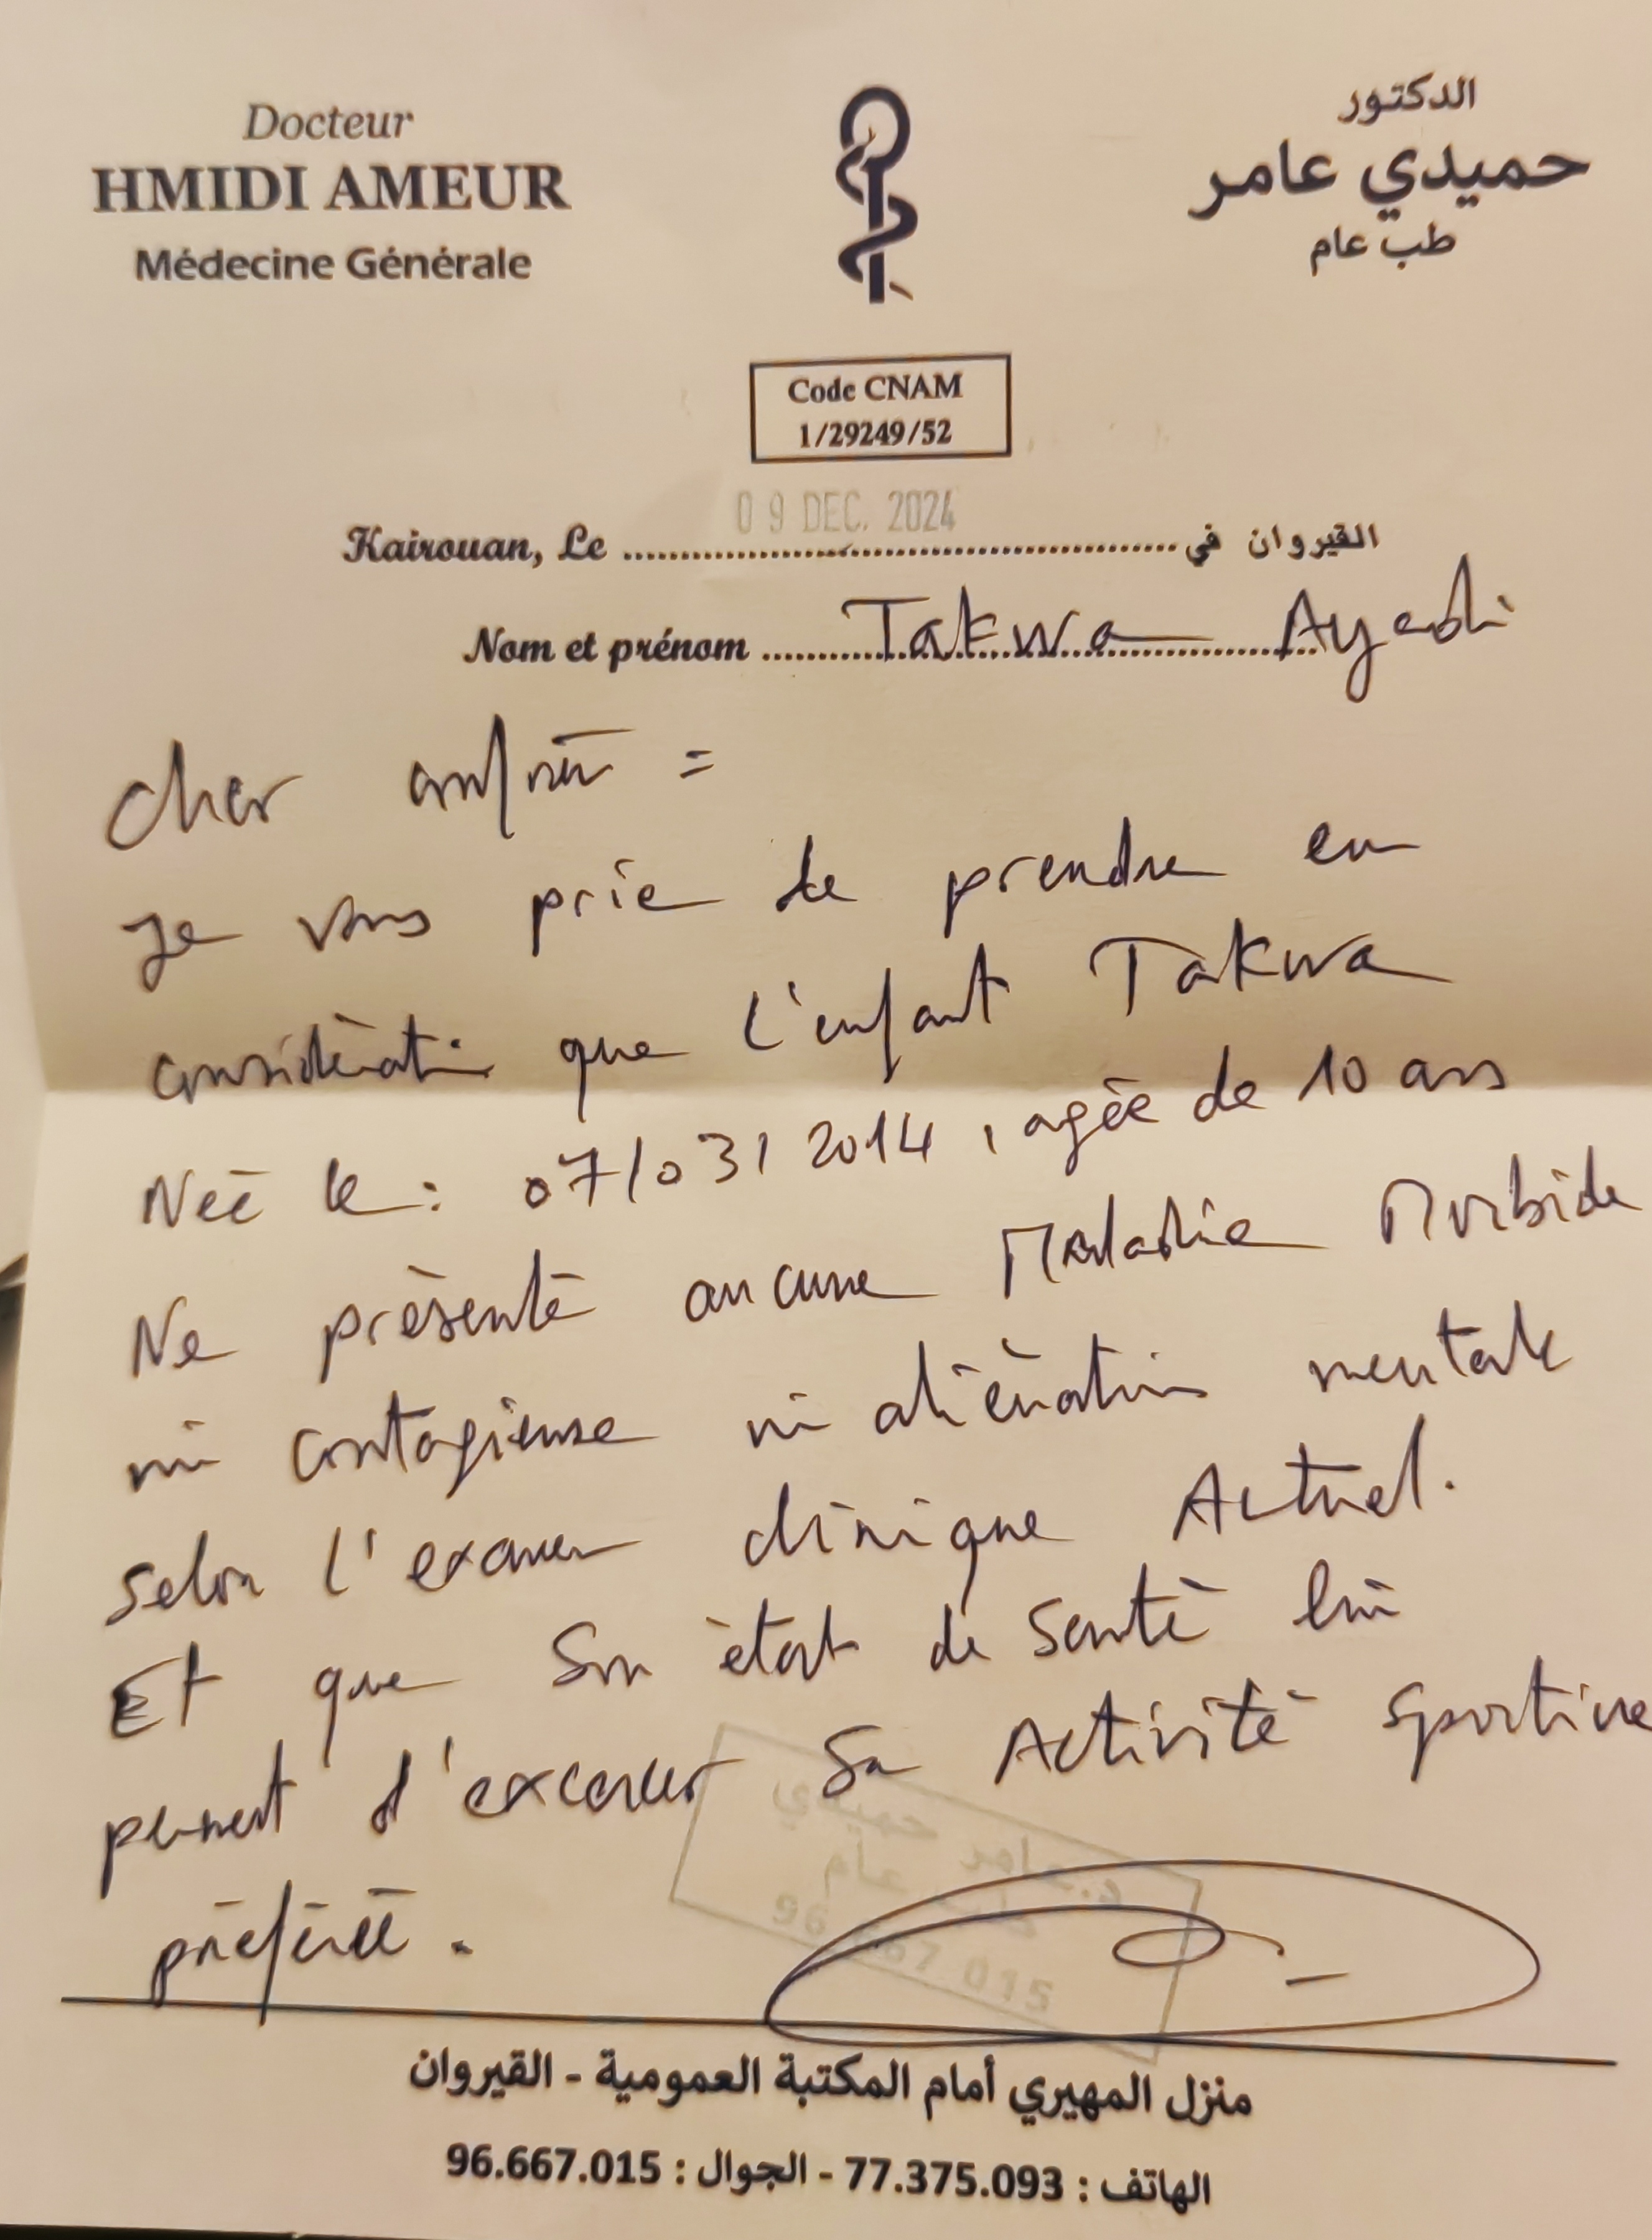 Docteur
HMIDI AMEUR
Médecine Générale
الدكتور
حميدي عامر
طب عام
Code CNAM
1/29249/52
09 DEC. 2024
Kairouan, Le ........................................ القيروان في
Nom et prénom ........ Takwa Ayadi
Cher confrère =
Je vous prie de prendre en
considération que l'enfant Takwa
Née le : 07/03/2014, agée de 10 ans
Ne présenté aucune Maladie Morbide
ni contagieuse ni aliénation mentale
selon l'examen clinique Actuel.
Et que Son état de santé lui
permet d'excercer Sa Activité sportive
préférée.
د.عامر حميدي
طب عام
96 667 015
منزل المهيري أمام المكتبة العمومية - القيروان
الهاتف : 77.375.093 - الجوال : 96.667.015